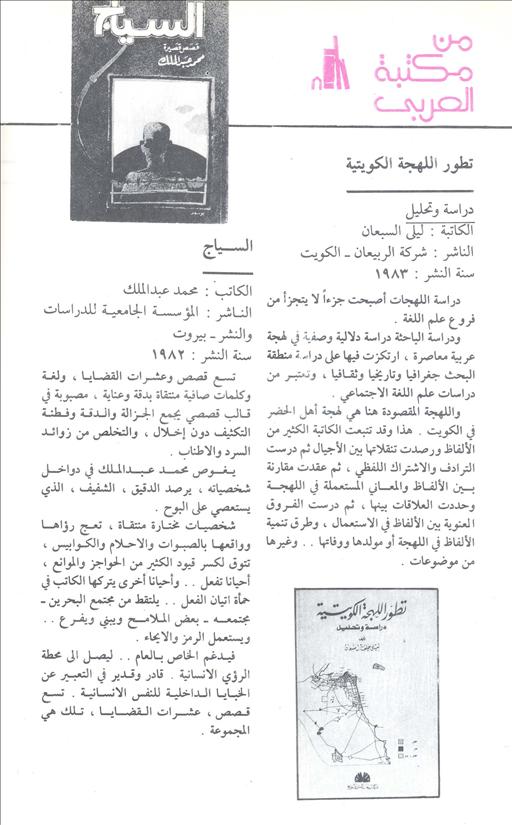 من
مكتبة
العربي
تطور اللهجة الكويتية
دراسة وتحليل
الكاتبة : ليلى السبعان
الناشر : شركة الربيعان ـ الكويت
سنة النشر : ١٩٨٣
دراسة اللهجات أصبحت جزءاً لا يتجزأ من
فروع علم اللغة .
ودراسة الباحثة دراسة دلالية وصفية في لهجة
عربية معاصرة ، ارتكزت فيها على دراسة منطقة
البحث جغرافيا وتاريخيا وثقافيا ، وتعتبر من
دراسات علم اللغة الاجتماعي .
واللهجة المقصودة هنا هي لهجة أهل الحضر
في الكويت . هذا وقد تتبعت الكاتبة الكثير من
الألفاظ ورصدت تنقلاتها بين الأجيال ثم درست
الترادف والاشتراك اللفظي ، ثم عقدت مقارنة
بين الألفاظ والمعاني المستعملة في اللهجة
وحددت العلاقات بينها ، ثم درست الفروق
المعنوية بين الألفاظ في الاستعمال ، وطرق تنمية
الألفاظ في اللهجة أو مولدها ووفاتها . . وغيرها
من موضوعات .
تطور اللهجة الكويتية
دراسة وتحليل
السياج
قصص قصيرة
محمد عبدالملك
السياج
الكاتب : محمد عبدالملك
الناشر : المؤسسة الجامعية للدراسات
والنشر ـ بيروت
سنة النشر : ١٩٨٢
تسع قصص وعشرات القضايا ، ولغة
وكلمات صافية منتقاة بدقة وعناية ، مصبوبة في
قالب قصصي يجمع الجزالة والدقة وفطنة
التكثيف دون إخلال ، والتخلص من زوائد
السرد والاطناب .
يغوص محمد عبدالملك في دواخل
شخصياته ، يرصد الدقيق ، الشفيف ، الذي
يستعصي على البوح .
شخصيات مختارة منتقاة ، تعج رؤاها
وواقعها بالصبوات والاحلام والكوابيس ،
تتوق لكسر قيود الكثير من الحواجز والموانع ،
أحيانا تفعل . . وأحيانا أخرى يتركها الكاتب في
حمأة اتيان الفعل . . يلتقط من مجتمع البحرين ـ
مجتمعه ـ بعض الملامح ويبني ويفرع . .
ويستعمل الرمز والايحاء .
فيدغم الخاص بالعام . . ليصل الى محطة
الرؤي الانسانية . قادر وقدير في التعبير عن
الخبايا الداخلية للنفس الانسانية . تسع
قصص ، عشرات القضايا ، تلك هي
المجموعة .